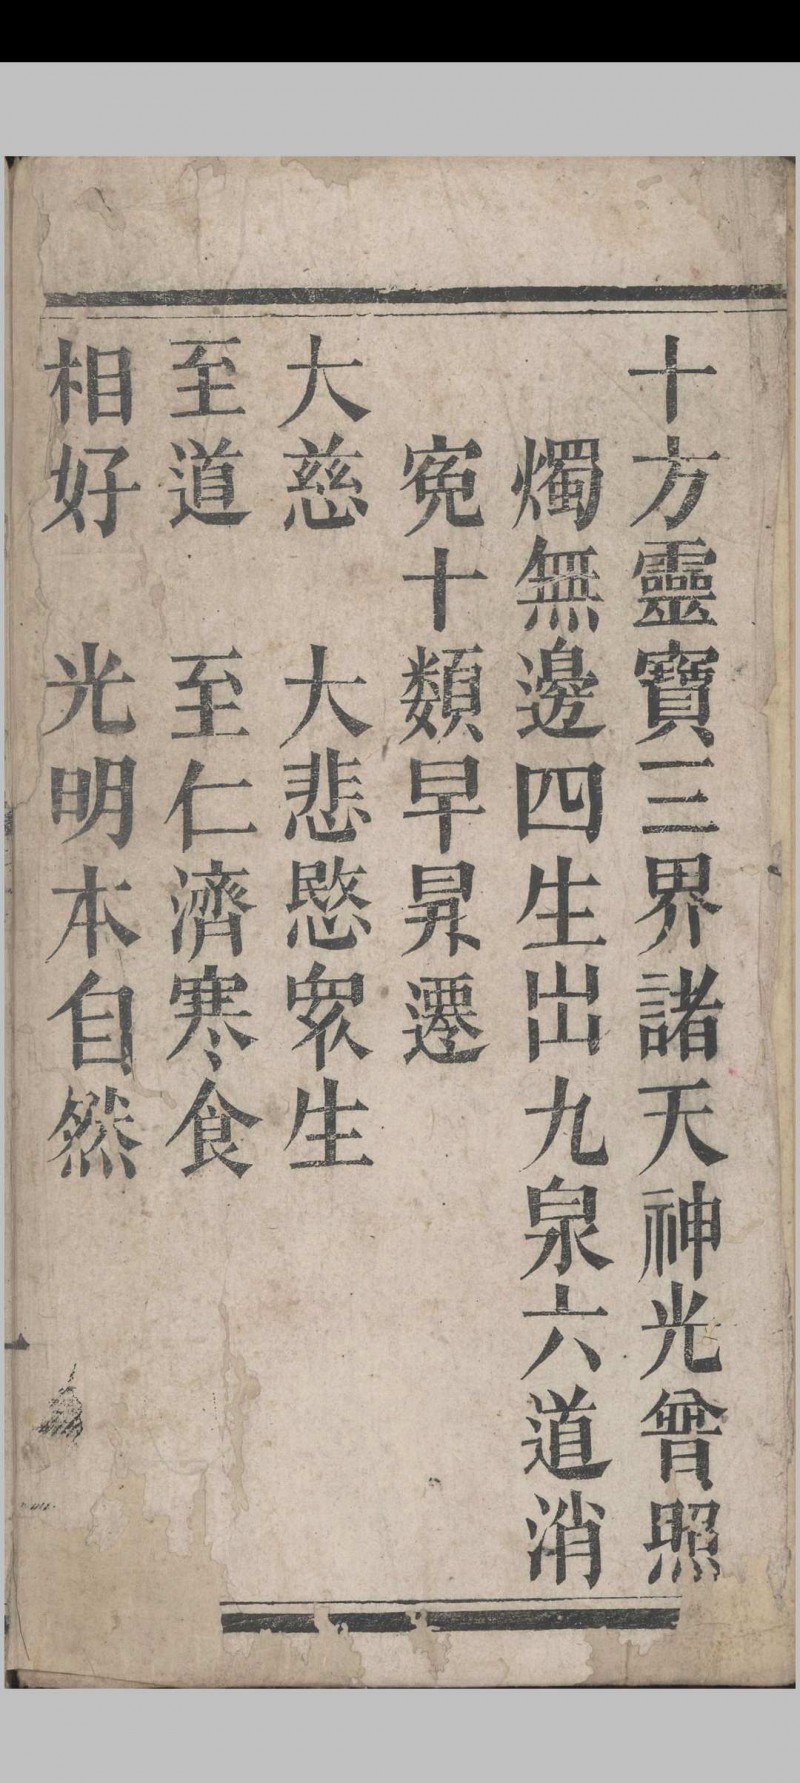 十方靈寶三界諸天神光曾照
燭無邊四生出九泉六道消
寃十類早昇遷
大慈 大悲愍衆生
至道 至仁濟寒食
相好 光明本自然